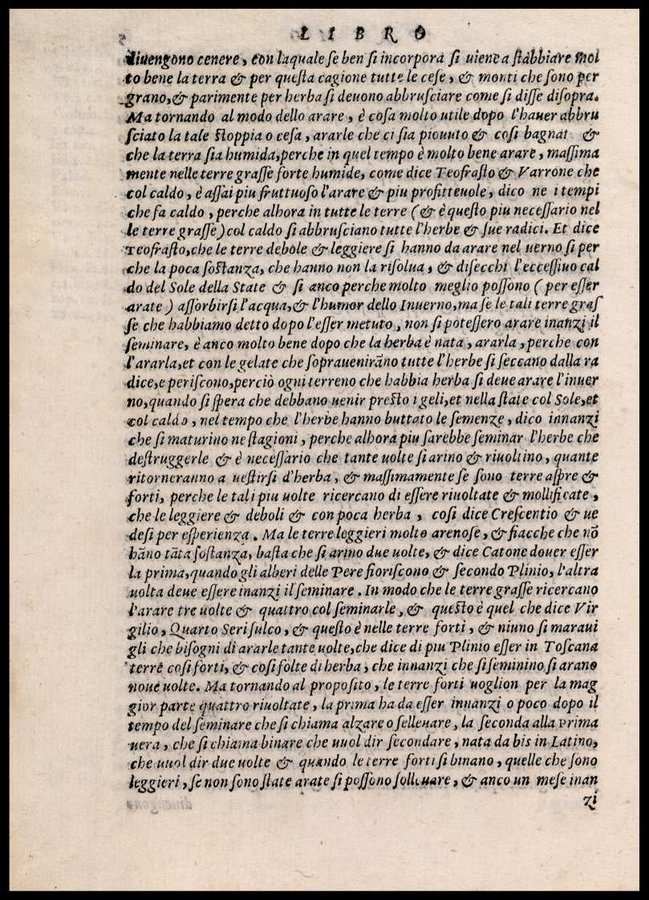 LIBRO
diuengono cenere, con laquale se ben si incorpora si uiene a stabbiare mol
to bene la terra & per questa cagione tutte le cese, & monti che sono per
grano, & parimente per herba si deuono abbrusciare come si disse disopra.
Ma tornando al modo dello arare, è cosa molto utile dopo l'hauer abbru
sciato la tale stoppia o cesa, ararle che ci sia piouuto & cosi bagnat &
che la terra sia humida, perche in quel tempo è molto bene arare, massima
mente nelle terre grasse forte humide, come dice Teofrasto & Varrone che
col caldo, è assai piu fruttuoso l'arare & piu profitteuole, dico ne i tempi
che fa caldo, perche alhora in tutte le terre (& è questo piu necessario nel
le terre grasse) col caldo si abbrusciano tutte l'herbe & sue radici. Et dice
Teofrasto, che le terre debole & leggiere si hanno da arare nel uerno si per
che la poca sostanza, che hanno non la risolua, & disecchi l'eccessiuo cal
do del Sole della State & si anco perche molto meglio possono (per esser
arate) assorbirsi l'acqua, & l'humor dello Inuerno, ma se le tali terre gras
se che habbiamo detto dopo l'esser metuto, non si potessero arare inanzi il
seminare, è anco molto bene dopo che la herba è nata, ararla, perche con
l'ararla, et con le gelate che soprauenirāno tutte l'herbe si seccano dalla ra
dice, e periscono, perciò ogni terreno che habbia herba si deue arare l'inuer
no, quando si spera che debbano uenir presto i geli, et nella state col Sole, et
col caldo, nel tempo che l'herbe hanno buttato le semenze, dico innanzi
che si maturino ne stagioni, perche alhora piu sarebbe seminar l'herbe che
destruggerle & è necessario che tante uolte si arino & riuoltino, quante
ritorneranno a uestirsi d'herba, & massimamente se sono terre aspre &
forti, perche le tali piu uolte ricercano di essere riuoltate & mollificate,
che le leggiere & deboli & con poca herba, cosi dice Crescentio & ue
desi per esperienza. Ma le terre leggieri molto arenose, & fiacche che nō
hāno tāta sostanza, basta che si arino due uolte, & dice Catone douer esser
la prima, quando gli alberi delle Pere fioriscono & secondo Plinio, l'altra
uolta deue essere inanzi il seminare. In modo che le terre grasse ricercano
l'arare tre uolte & quattro col seminarle, & questo è quel che dice Vir
gilio, Quarto Seri sulco, & questo è nelle terre forti, & niuno si maraui
gli che bisogni di ararle tante uolte, che dice di piu Plinio esser in Toscana
terre cosi forti, & cosi folte di herba, che innanzi che si seminino si arano
noue uolte. Ma tornando al proposito, le terre forti uoglion per la mag
gior parte quattro riuoltate, la prima ha da esser innanzi o poco dopo il
tempo del seminare che si chiama alzare o selleuare, la seconda alla prima
uera, che si chiama binare che uuol dir secondare, nata da bis in Latino,
che uuol dir due uolte & quando le terre forti si binano, quelle che sono
leggieri, se non sono state arate si possono solleuare, & anco un mese inan
zi